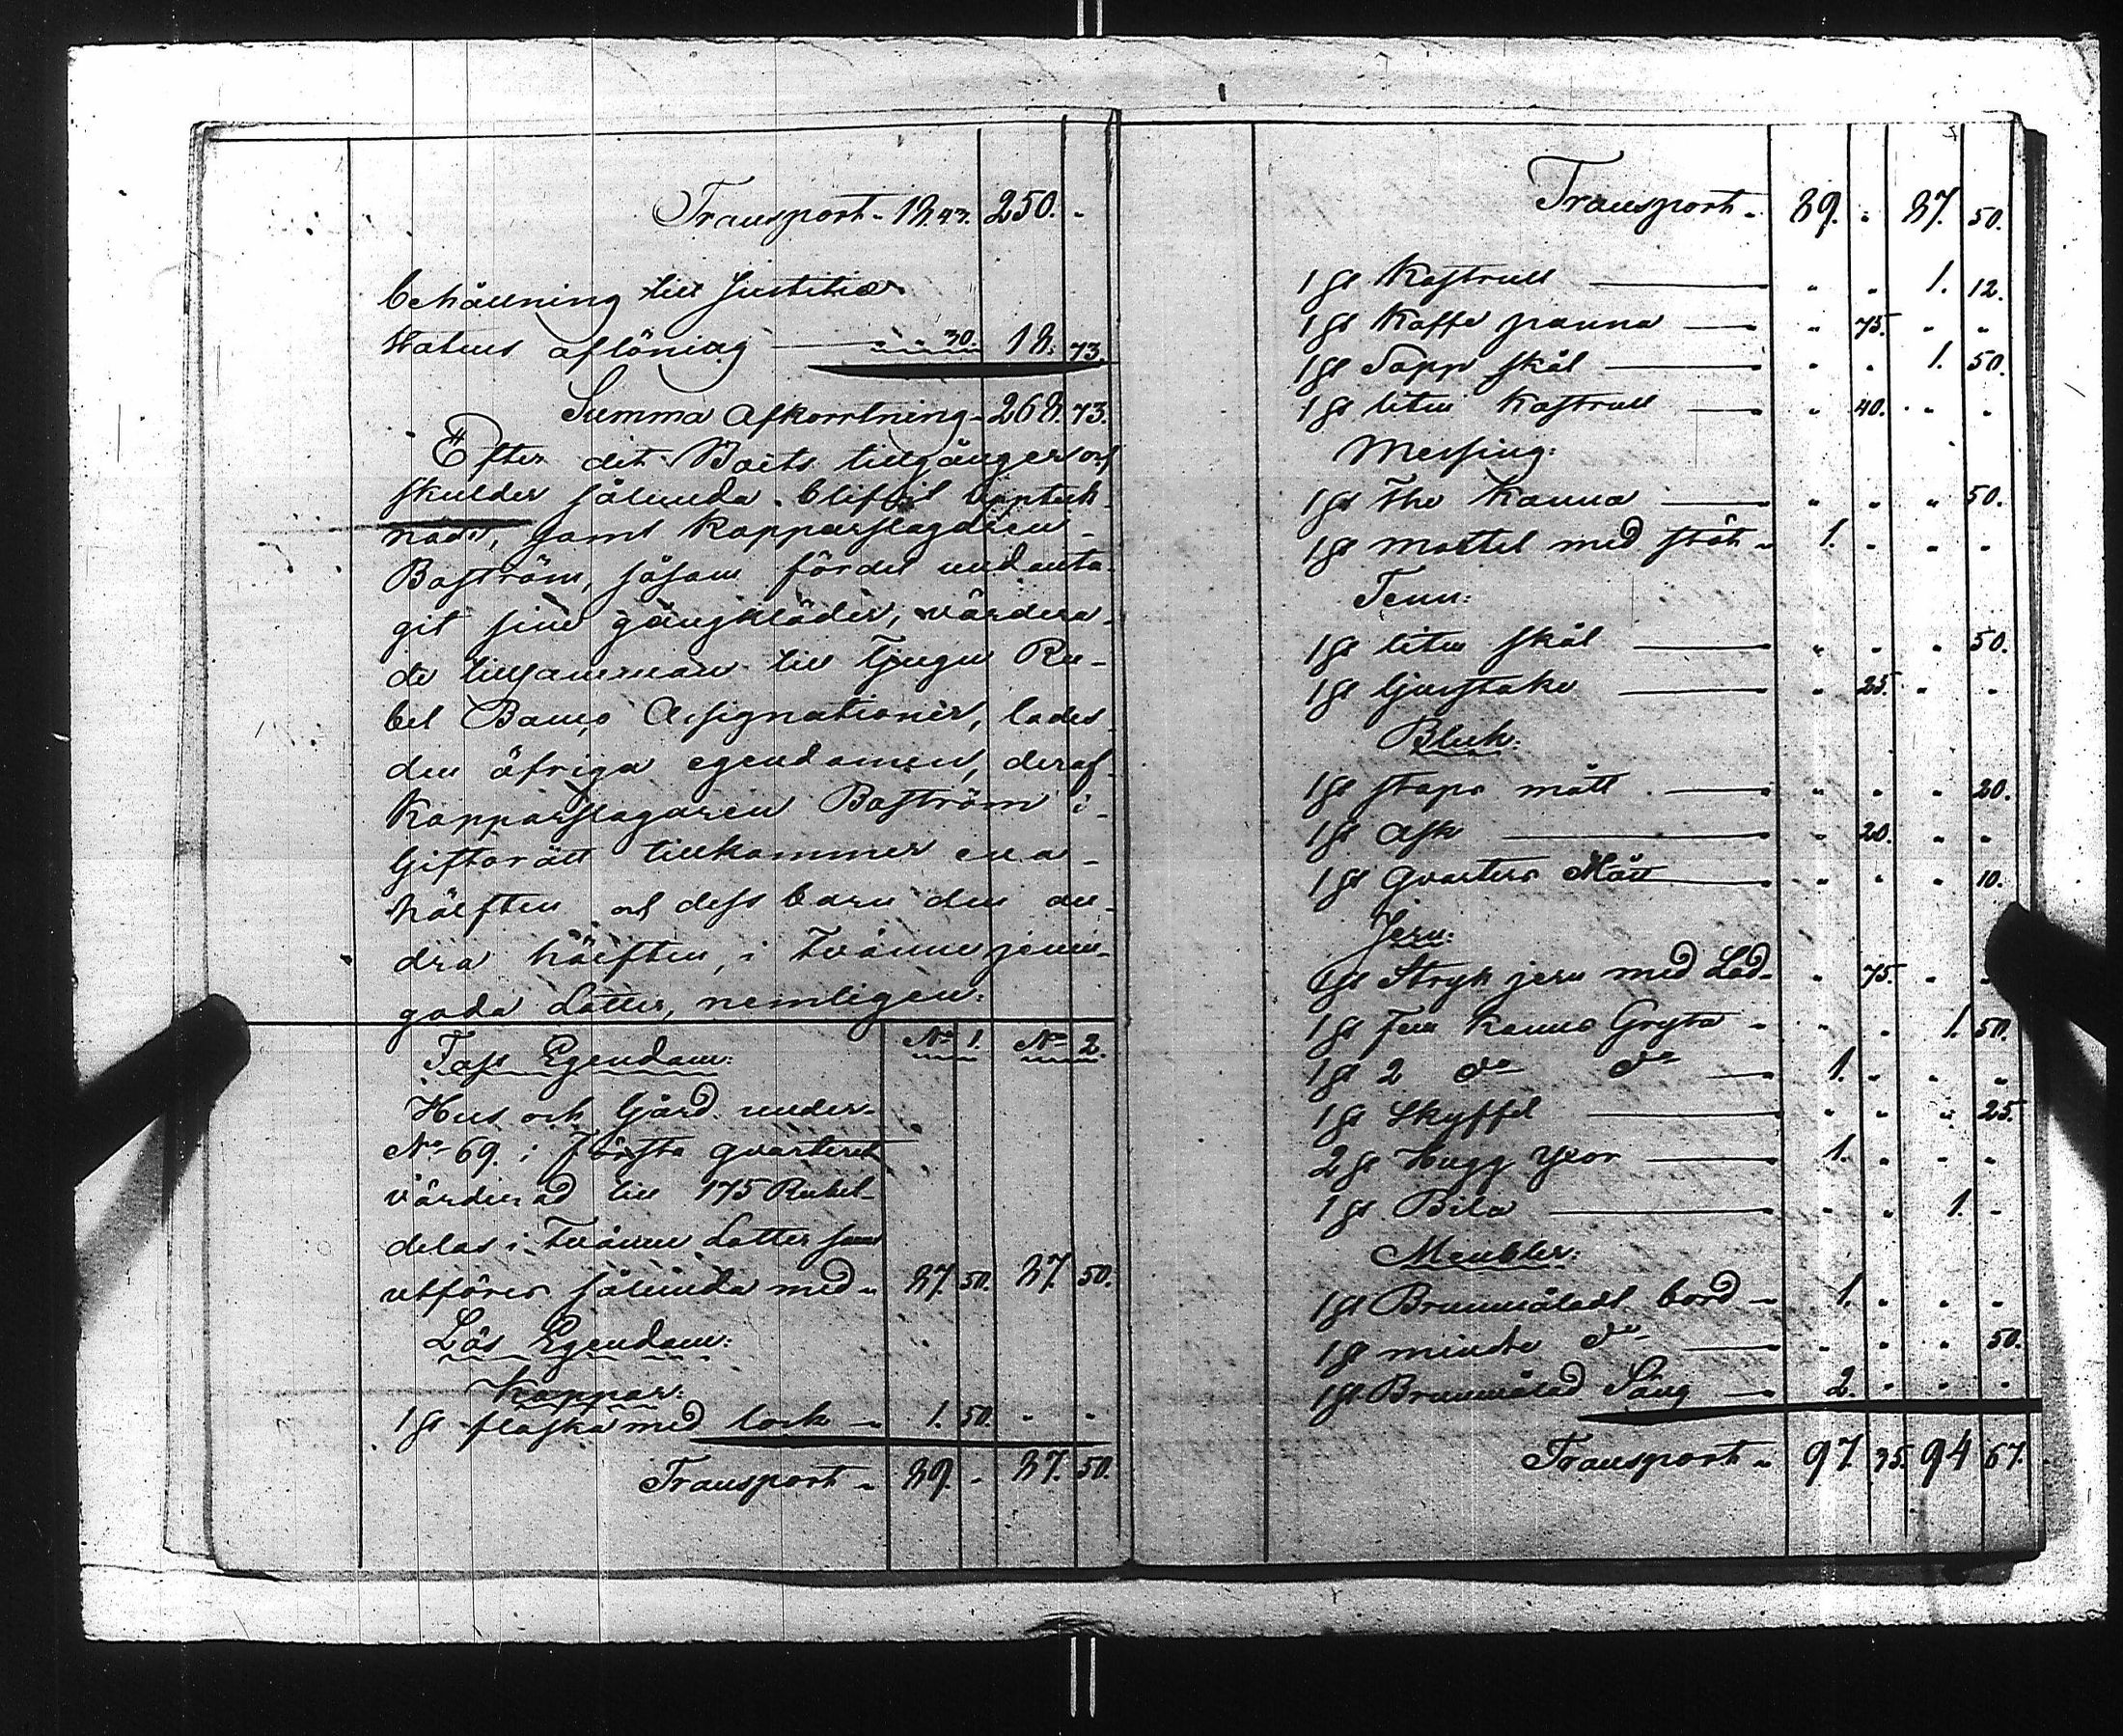 Transport - 18.43. 250. -
behållning till Justitiæ
Statens aflöning — 30. 18. 73.
Summa Afkorrtning - 268. 73.
Efter det Boets tillgångar och
skulder sålunda blifvit uppteck-
nade, samt Kopparslagaren
Boström, såsom fördel undanta-
git sine gångkläder, värdera-
de tillsamman till Tjugu Ru-
bel Banco Assignationer, lades
den öfriga egendomen, deraf
Kopparslagaren Boström i
Giftorätt tillkommer ena
hälften och dess barn den an-
dra hälften, i tvänne jemn-
goda Lotter, nemligen:
Fast Egendom: No 1. No 2.
Hus och Gård under
No 69. i Första quarteret
värderad till 175 Rubel
delas i Tvänne Lotter som
utföres sålunda med - 87. 50. 87. 50.
Lös Egendom:
Koppar:
1 st flaska med lock - 1. 50. - -
Transport - 89. - 87. 50.
Transport - 89. - 87. 50.
1 st Kastrull — - - 1. 12.
1 st Kaffe panna — - 75. - -
1 st Sopp skål — - - 1. 50.
1 st liten Kastrull — - 40. - -
Messing:
1 st The Kanna — - - - 50.
1 st Mortel med stöt - 1. - - -
Tenn:
1 st liten skål — - - - 50.
1 st ljusstake — - 25. - -
Bleck:
1 st stops mått — - - - 20.
1 st Ask — - 20. - -
1 st Qvarters Mått — - - - 10.
Jern:
1 st Stryk jern med Lod - - 75. - -
1 st Fem Kannis Gryta - - - 1. 50.
1 st 2 do do — 1. - - -
1 st Skyffel — - - - 25.
2 st Hugg yxor — 1. - - -
1 st Bila — - - 1. -
Meubler:
1 st Brunmåladt bord - 1. - - -
1 st mindre do — - - - 50.
1 st Brunmålad Säng — 2. - - -
Transport - 97. 35. 94 67.